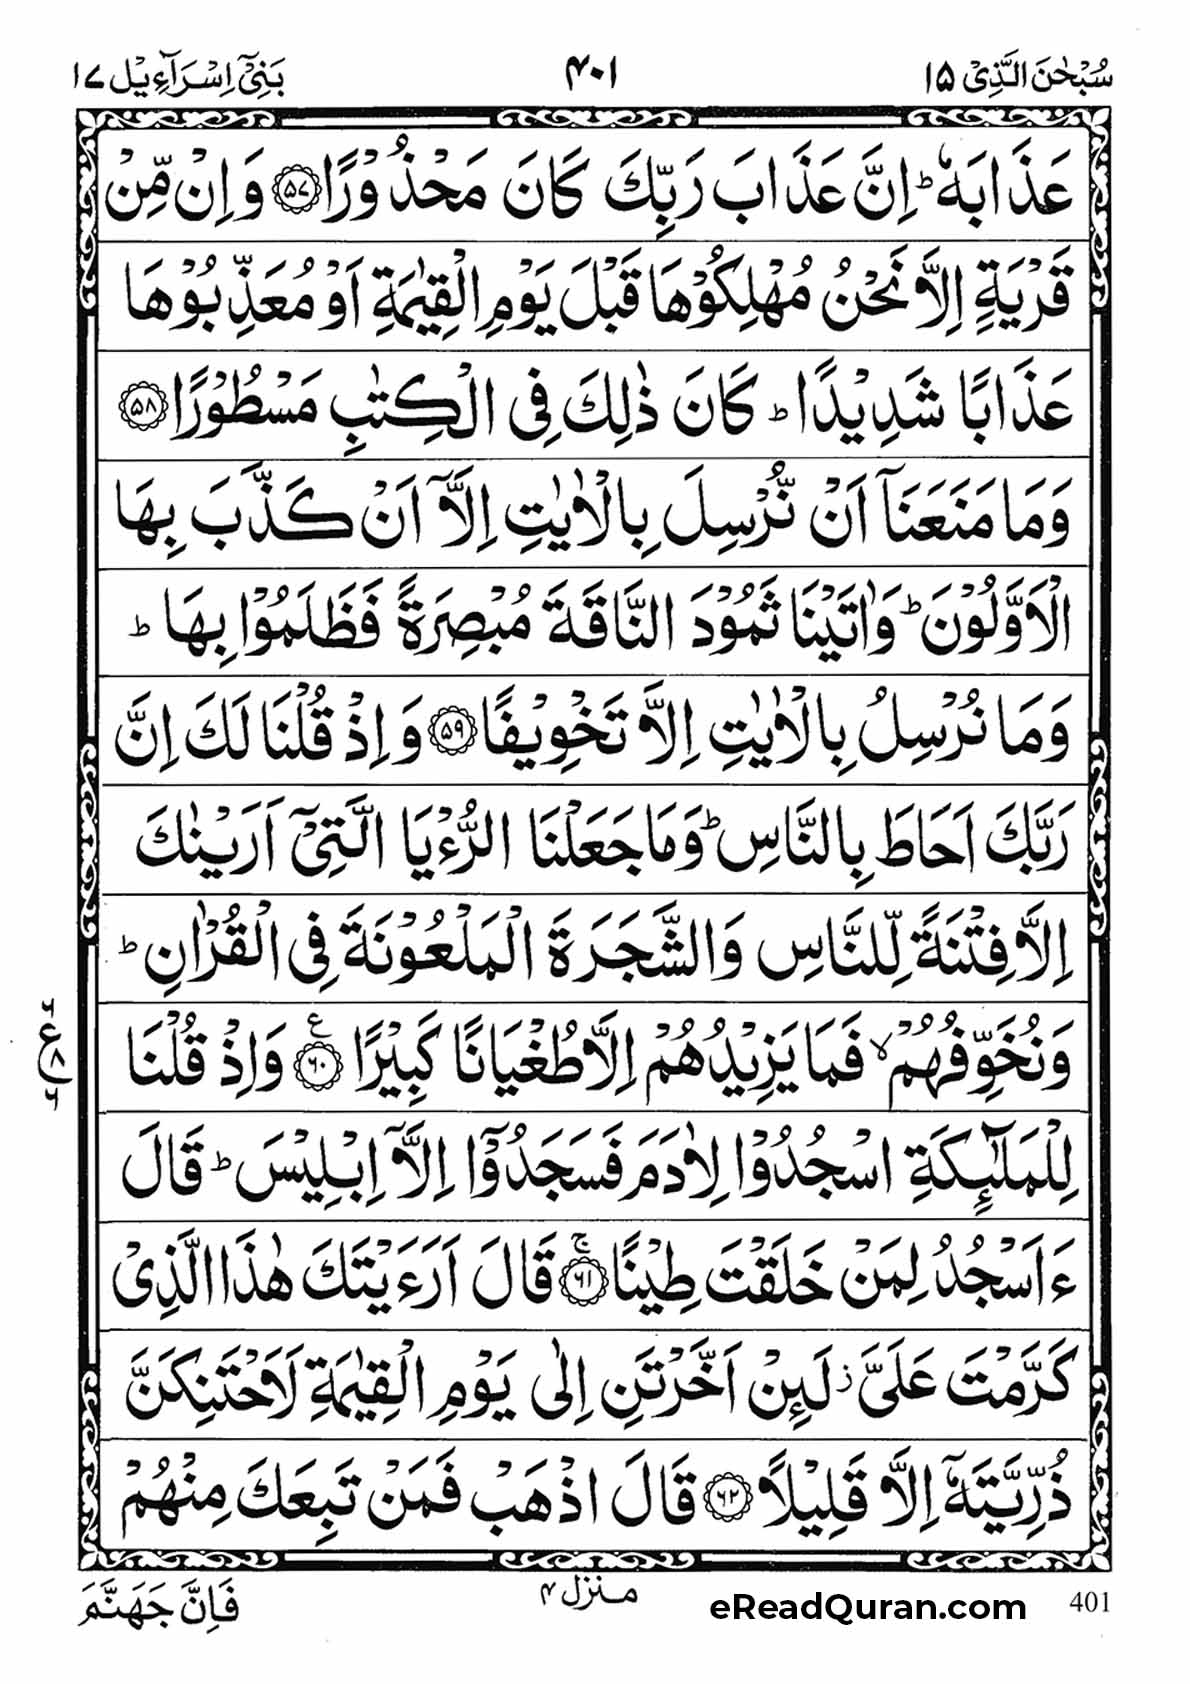 سُبْحٰنَ الَّذِىْ ۱۵
۴۰۱
بَنِىْٓ اِسْرَآءِيْل ۱۷
عَذَابَهٗ ؕ اِنَّ عَذَابَ رَبِّكَ كَانَ مَحْذُوْرًا ۝۵۷ وَاِنْ مِّنْ
قَرْيَةٍ اِلَّا نَحْنُ مُهْلِكُوْهَا قَبْلَ يَوْمِ الْقِيٰمَةِ اَوْ مُعَذِّبُوْهَا
عَذَابًا شَدِيْدًا ؕ كَانَ ذٰلِكَ فِى الْكِتٰبِ مَسْطُوْرًا ۝۵۸
وَمَا مَنَعَنَاۤ اَنْ نُّرْسِلَ بِالْاٰيٰتِ اِلَّاۤ اَنْ كَذَّبَ بِهَا
الْاَوَّلُوْنَ ؕ وَاٰتَيْنَا ثَمُوْدَ النَّاقَةَ مُبْصِرَةً فَظَلَمُوْا بِهَا ؕ
وَمَا نُرْسِلُ بِالْاٰيٰتِ اِلَّا تَخْوِيْفًا ۝۵۹ وَاِذْ قُلْنَا لَكَ اِنَّ
رَبَّكَ اَحَاطَ بِالنَّاسِ ؕ وَمَا جَعَلْنَا الرُّءْيَا الَّتِىْۤ اَرَيْنٰكَ
اِلَّا فِتْنَةً لِّلنَّاسِ وَالشَّجَرَةَ الْمَلْعُوْنَةَ فِى الْقُرْاٰنِ ؕ
وَنُخَوِّفُهُمْ ۙ فَمَا يَزِيْدُهُمْ اِلَّا طُغْيَانًا كَبِيْرًا ۝۶۰ ع وَاِذْ قُلْنَا
۶ ع ۸ ۶
لِلْمَلٰٓئِكَةِ اسْجُدُوْا لِاٰدَمَ فَسَجَدُوْۤا اِلَّاۤ اِبْلِيْسَ ؕ قَالَ
ءَاَسْجُدُ لِمَنْ خَلَقْتَ طِيْنًا ۝۶۱ ۚ قَالَ اَرَءَيْتَكَ هٰذَا الَّذِىْ
كَرَّمْتَ عَلَىَّ ز لَىِٕنْ اَخَّرْتَنِ اِلٰى يَوْمِ الْقِيٰمَةِ لَاَحْتَنِكَنَّ
ذُرِّيَّتَهٗۤ اِلَّا قَلِيْلًا ۝۶۲ قَالَ اذْهَبْ فَمَنْ تَبِعَكَ مِنْهُمْ
401
eReadQuran.com
منزل ۴
فَاِنَّ جَهَنَّمَ